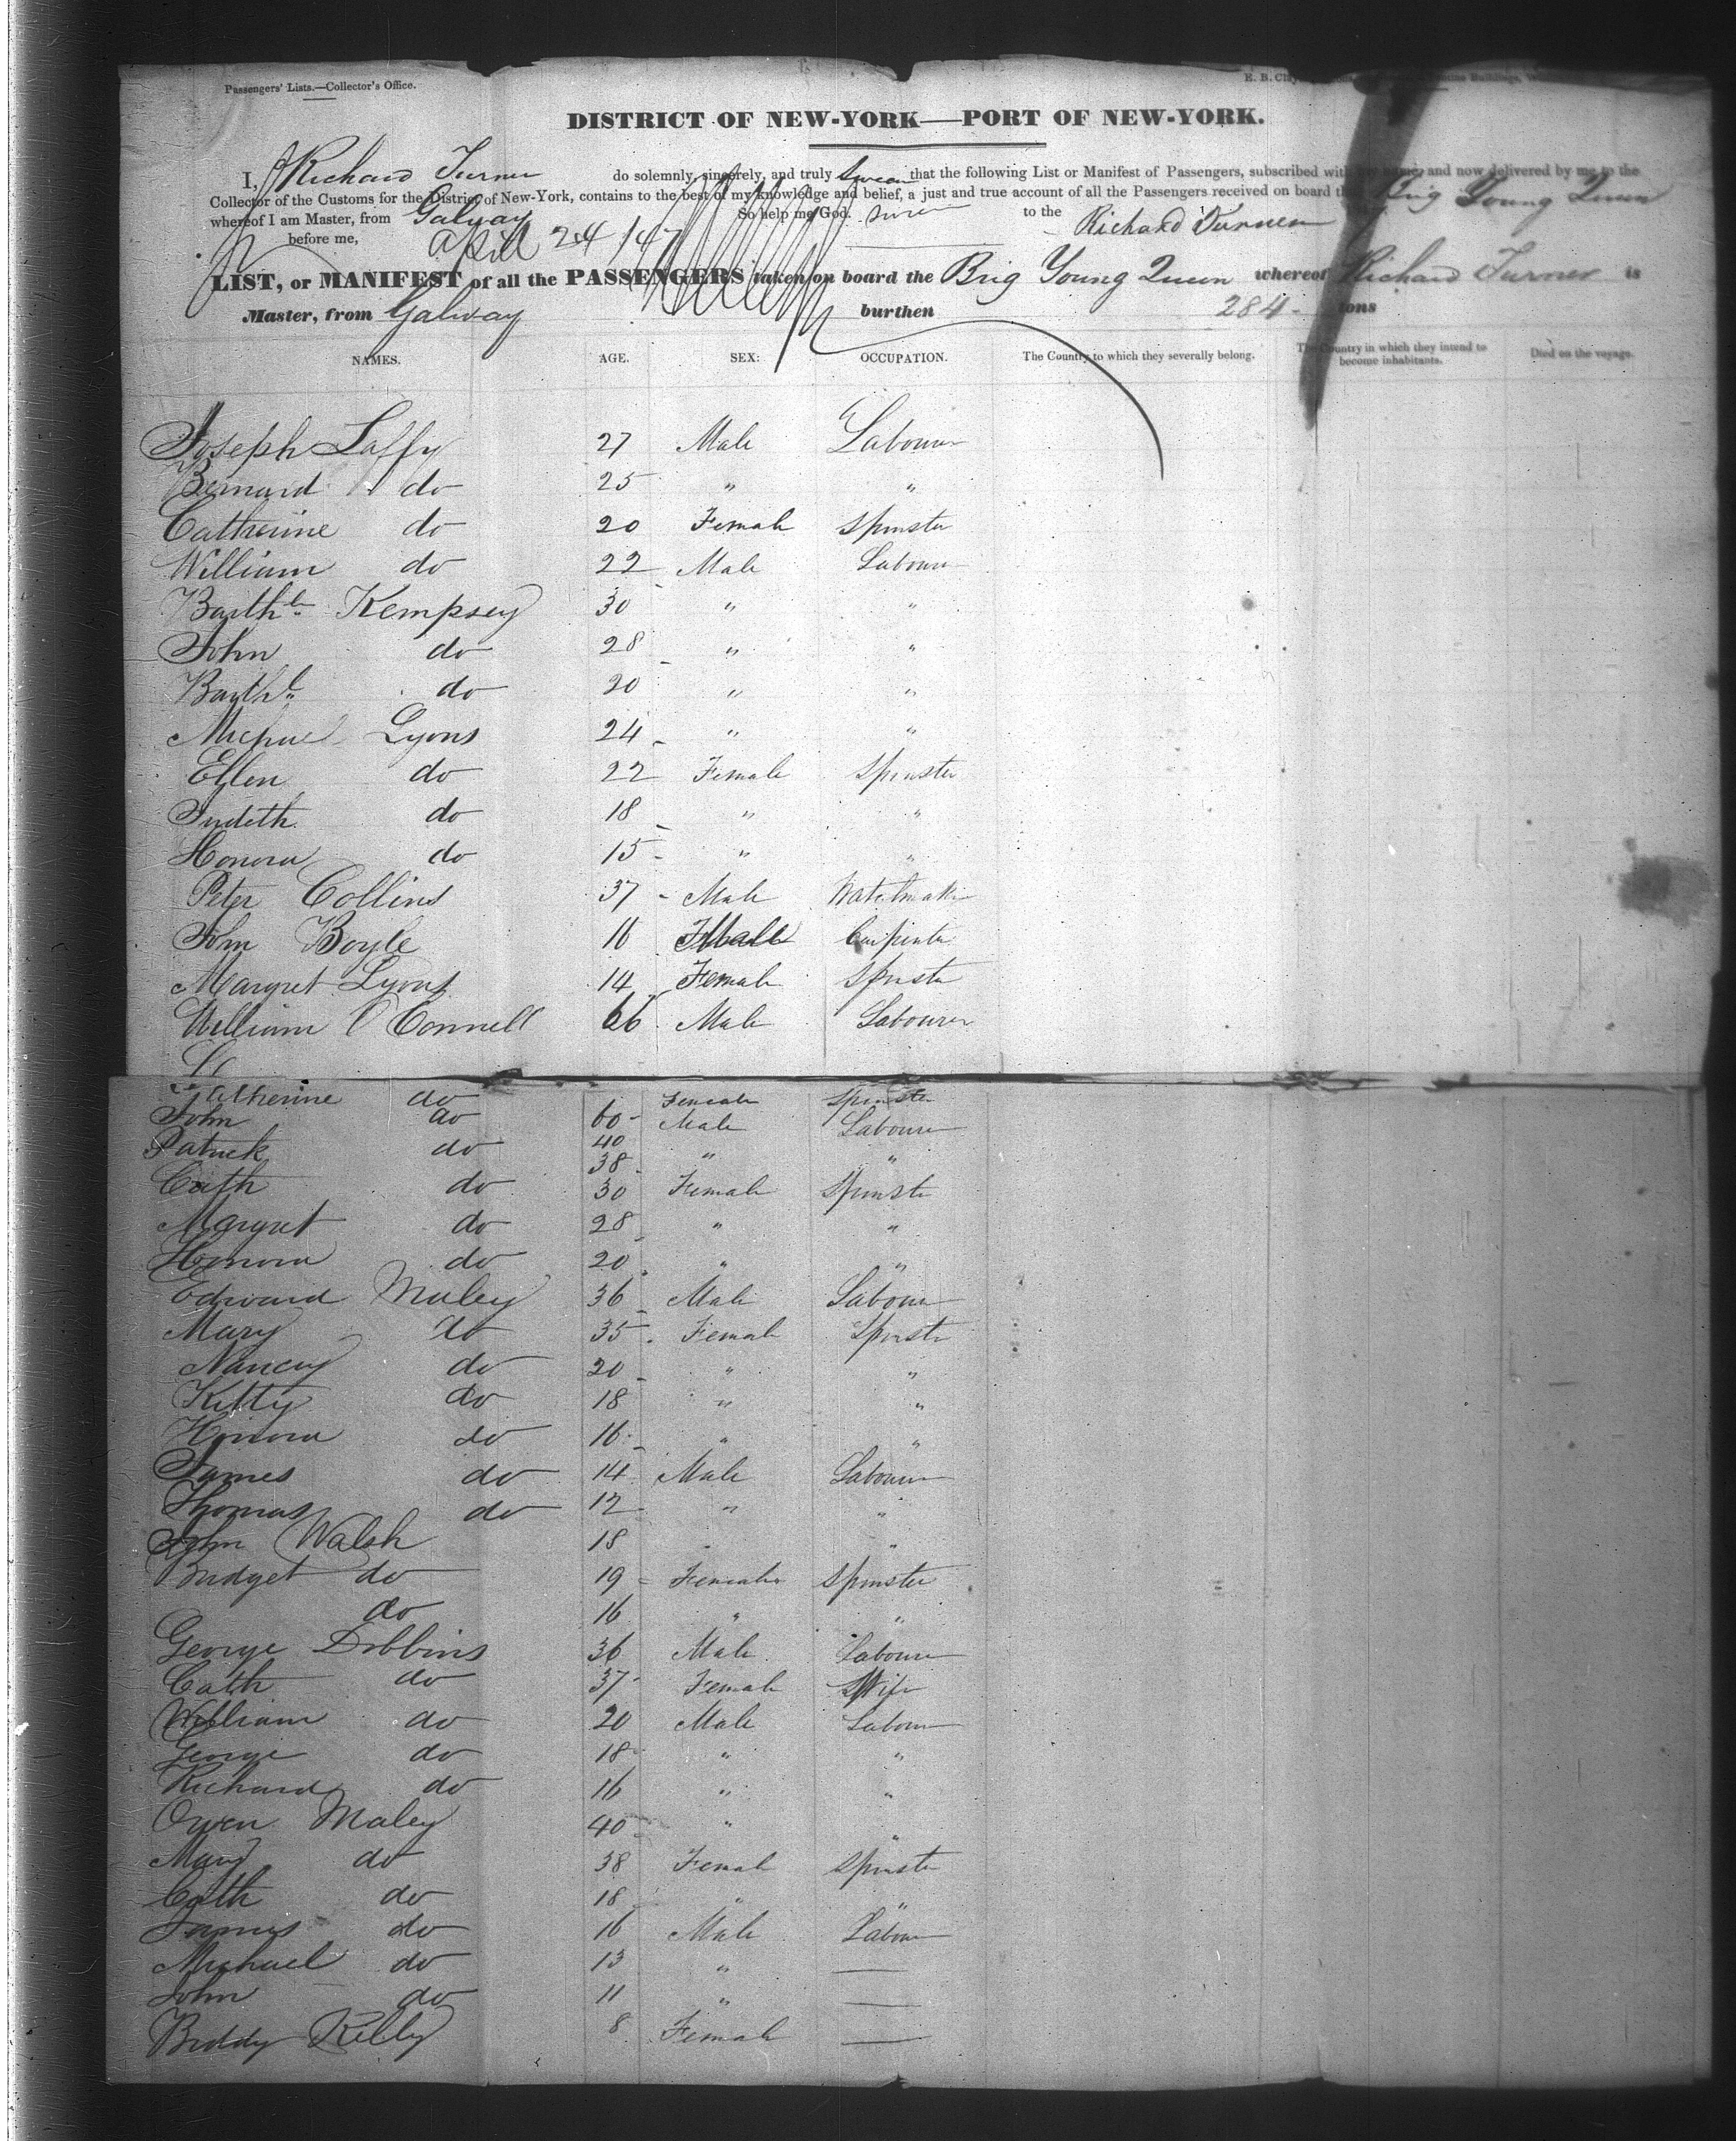 Passengers' Lists.—Collector's Office.
DISTRICT OF NEW-YORK—PORT OF NEW-YORK.
I, Richard Turner do solemnly, sincerely, and truly Swear that the following List or Manifest of Passengers, subscribed with my name, and now delivered by me to the
Collector of the Customs for the District of New-York, contains to the best of my knowledge and belief, a just and true account of all the Passengers received on board the Brig Young Queen
whereof I am Master, from Galway So help me God. to the Richard Turner
before me, April 24/47
LIST, or MANIFEST of all the PASSENGERS taken on board the Brig Young Queen whereof Richard Turner is
Master, from Galway burthen 284 tons
NAMES. AGE. SEX: OCCUPATION. The Country to which they severally belong. The Country in which they intend to become inhabitants. Died on the voyage.
Joseph Laffy 27 Male Labourer
Bernard do 25 " "
Catherine do 20 Female Spinster
William do 22 Male Labourer
Barthl Kempsey 30 " "
John do 28 " "
Barthl do 20 " "
Michael Lyons 24 " "
Ellen do 22 Female Spinster
Judeth do 18 " "
Honora do 15 " "
Peter Collins 37 Male Watchmaker
John Boyle 18 Male Carpenter
Margret Lyons 14 Female Spinster
William O Connell 66 Male Labourer
Catherine do Female Spinster
John do 60 Male Labourer
Patrick do 40 " "
38
Cath do 30 Female Spinster
Margret do 28 " "
Honora do 20 " "
Edward Maley 36 Male Labourer
Mary do 35 Female Spinster
Nancy do 20 " "
Kitty do 18 " "
Honora do 16 " "
James do 14 Male Labourer
Thomas do 12 " "
John Walsh 18 " "
Bridget do 19 Female Spinster
do 16 " "
George Dobbins 36 Male Labourer
Cath do 37 Female Wife
William do 20 Male Labourer
George do 18 " "
Richard do 16 " "
Owen Maley 40 " "
Mary do 38 Female Spinster
Cath do 18 " "
James do 16 Male Labourer
Michael do 13 " —
John do 11 " —
Biddy Kelly 8 Female —